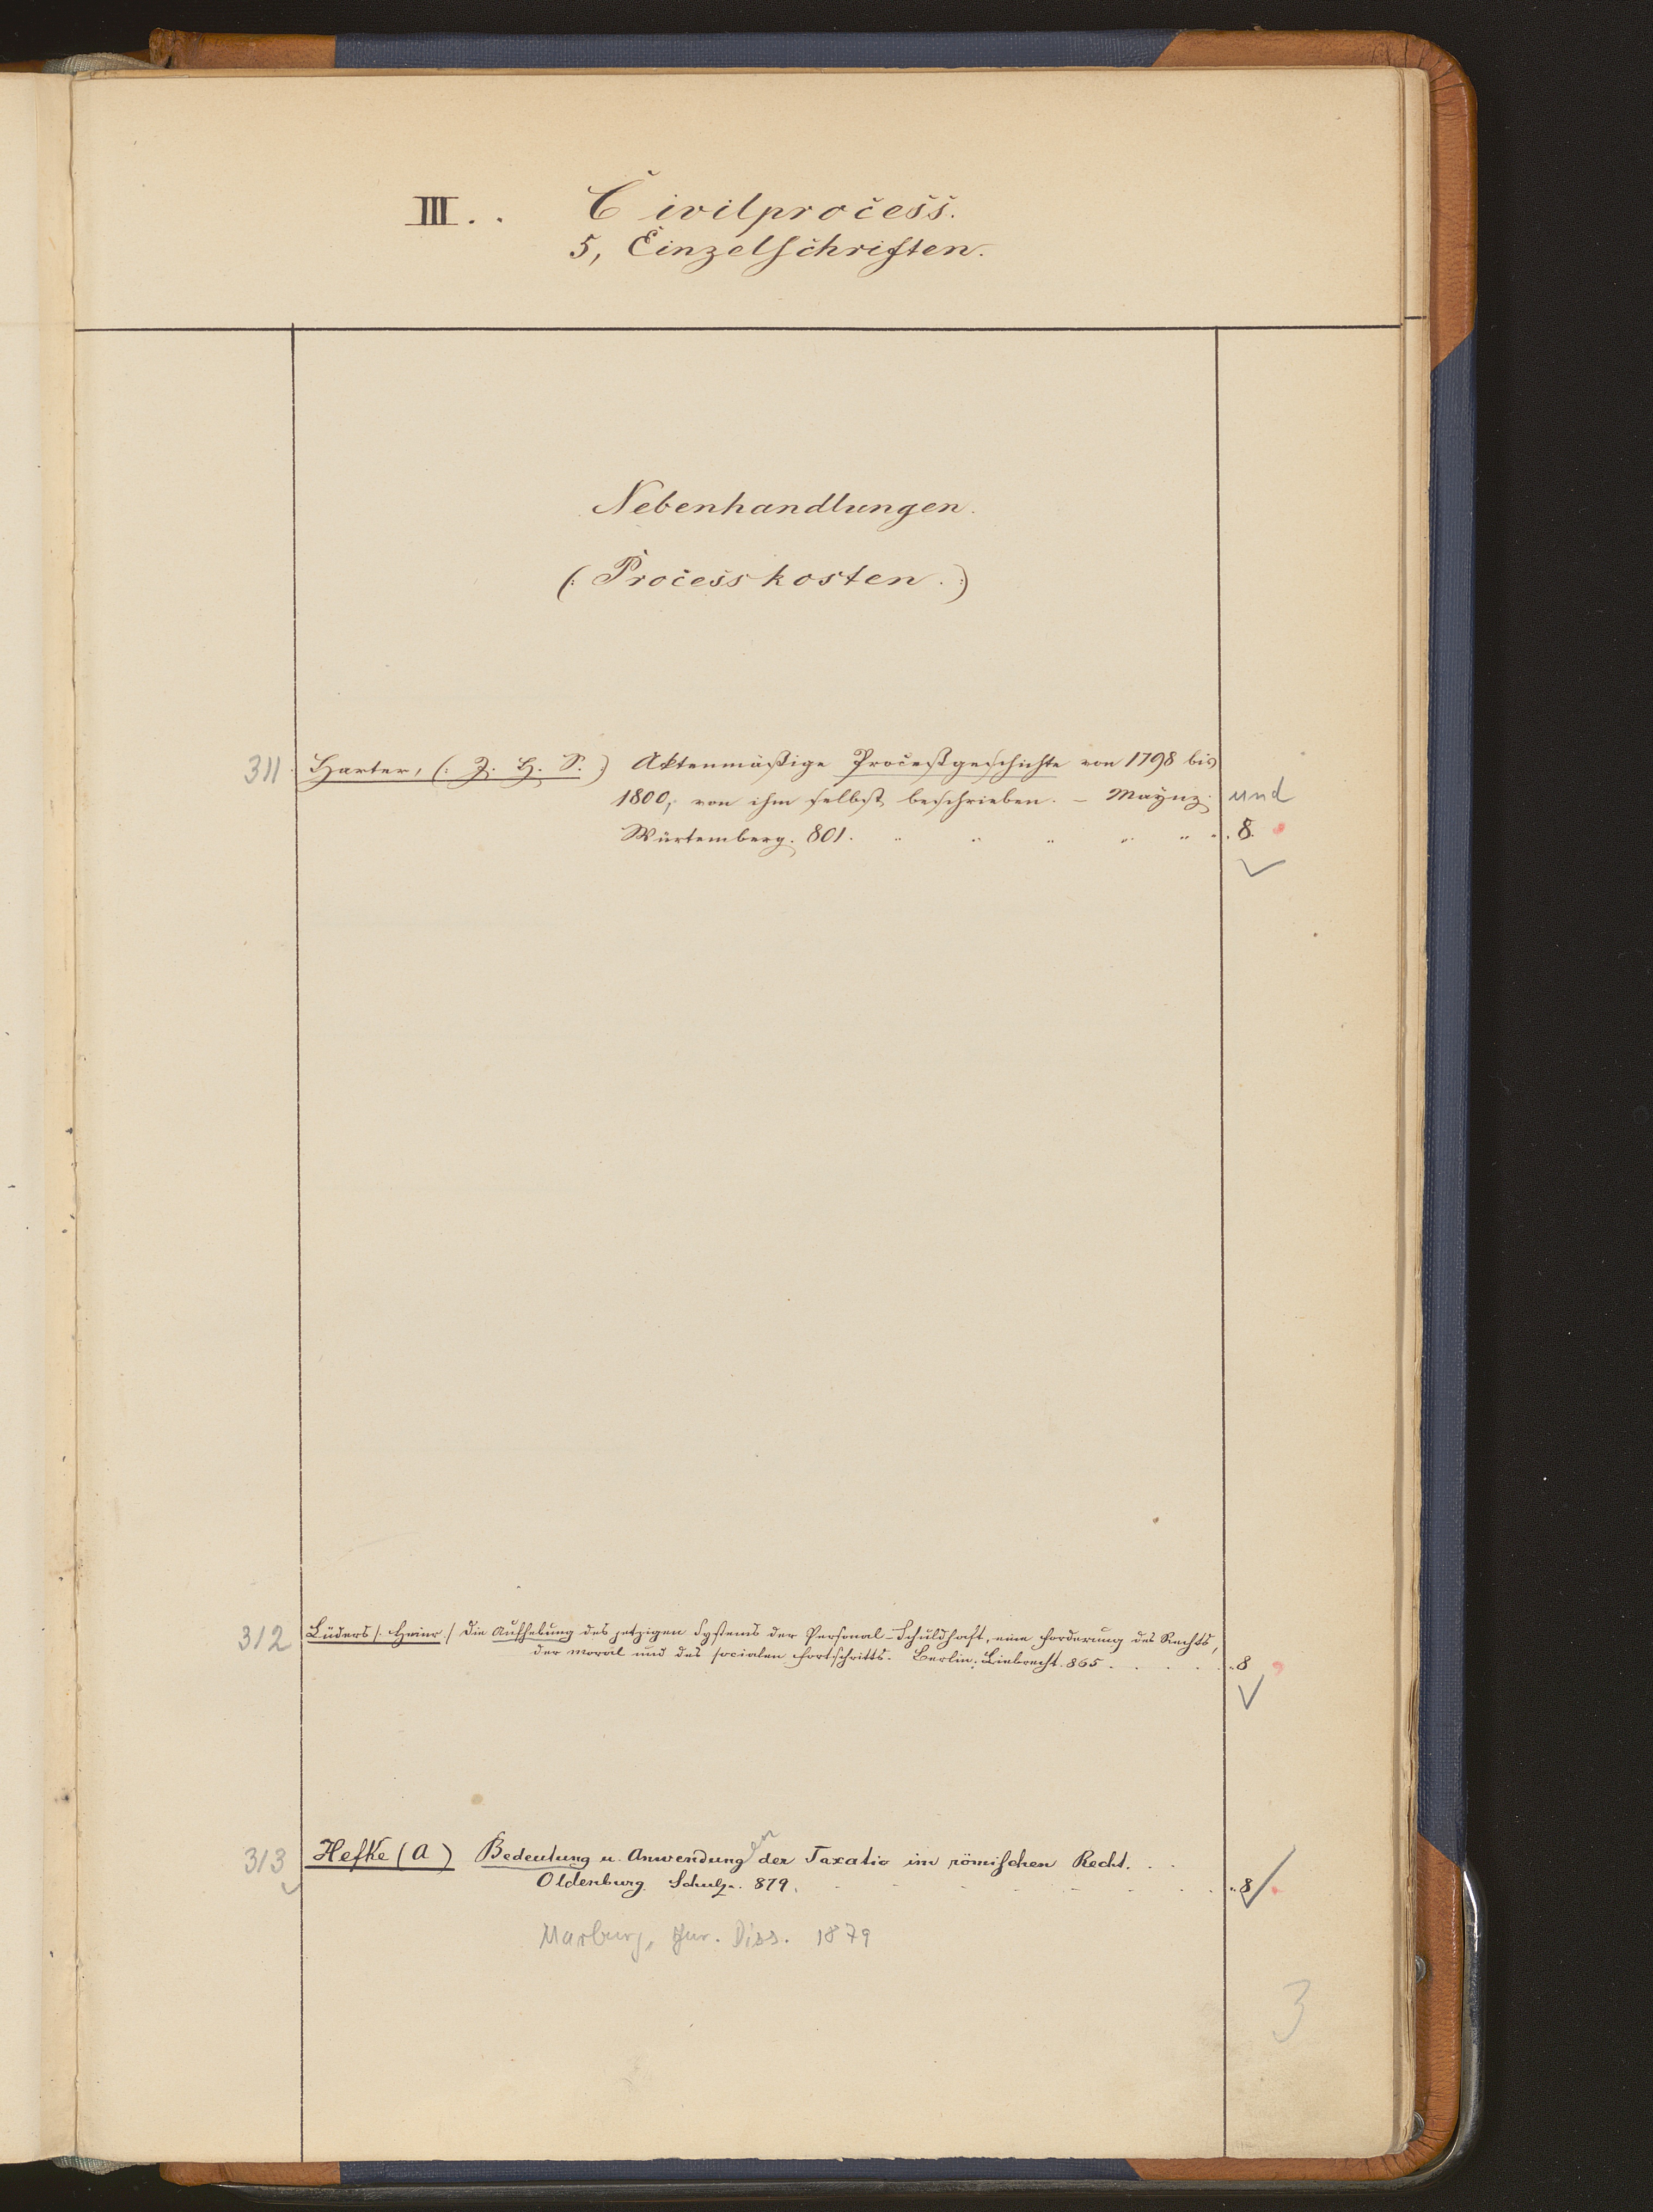 III.. Civilprocess.
5, Einzelschriften.
Nebenhandlungen.
(: Processkosten. :)
311. Harter, (: J. H. S. :) Aktenmäßige Proceßgeschichte von 1798 bis
1800, von ihm selbst beschrieben. - Maynz. und
Würtemberg. 801. . . . . . . 8.
312 Lüders /: Heinr. / Die Aufhebung des jetzigen Systems der Personal-Schuldhaft, eine Forderung des Rechts,
der Moral und des socialen Fortschritts. Berlin. Liebrecht. 865. . . . . . . 8
313 Hefke (A) Bedeutung u. Anwendungen der Taxatio im römischen Recht. . .
Oldenburg. Schulz. 879. . . . . . . . 8
Marburg, Jur. Diss. 1879
3